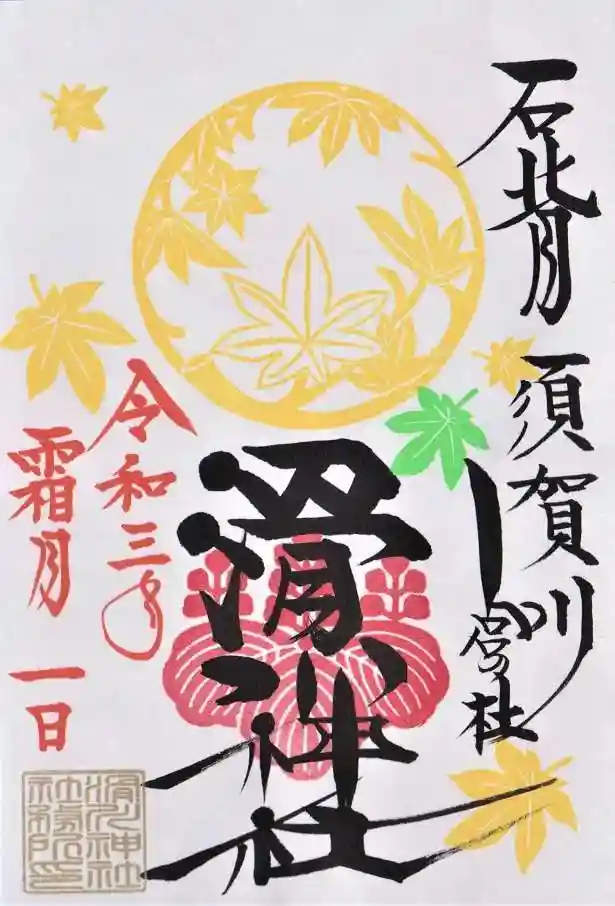 石背 須賀川
滑川神社
令和三年
霜月 一日
滑川神社
社務所印